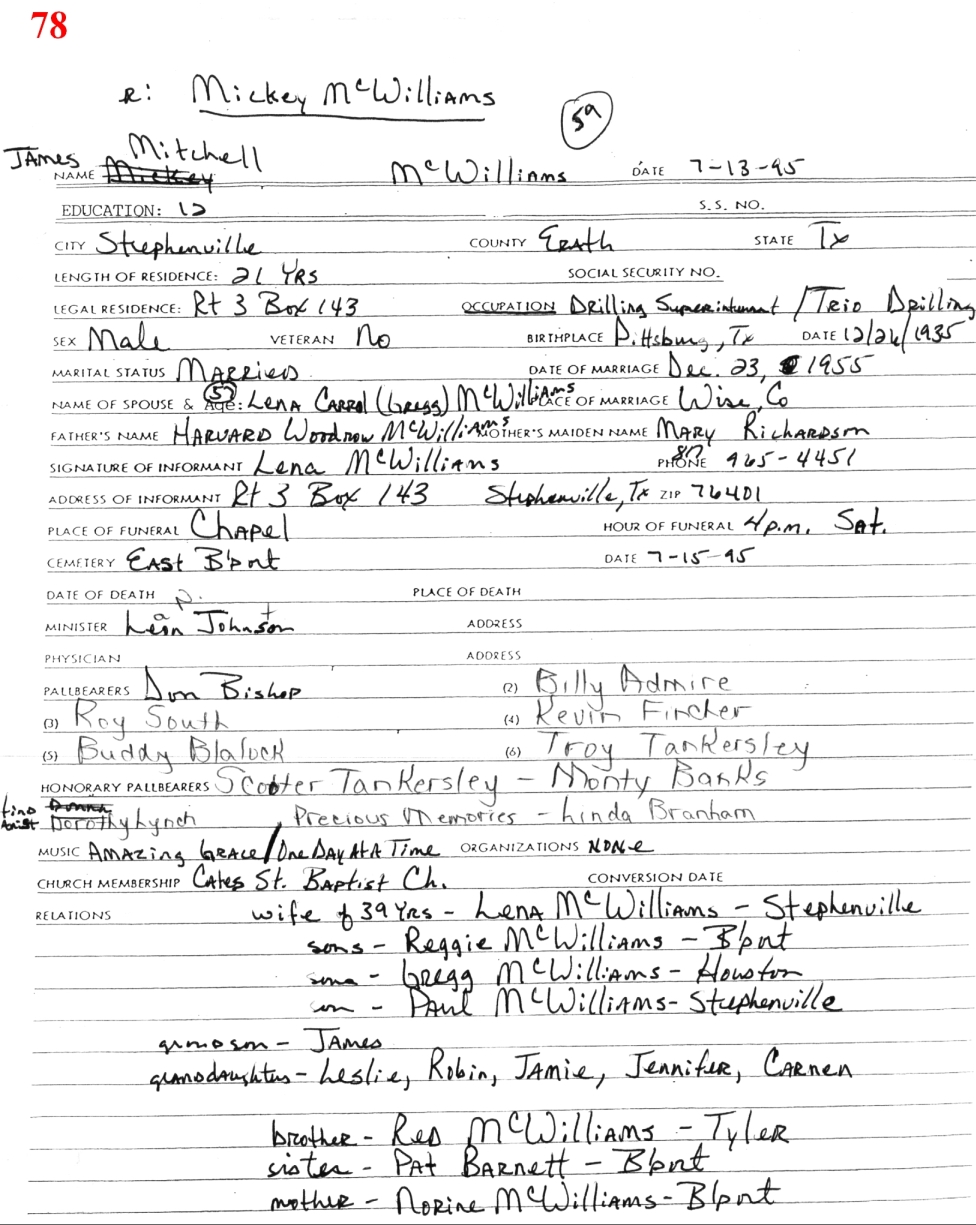 78
R: Mickey McWilliams
59
JAmes Mitchell
NAME Mickey McWilliams DATE 7-13-95
EDUCATION: 12 S.S. NO.
CITY Stephenville COUNTY Erath STATE Tx
LENGTH OF RESIDENCE: 21 YRS SOCIAL SECURITY NO.
LEGAL RESIDENCE: Rt 3 Box 143 OCCUPATION Drilling Superintunt / Trio Drilling
SEX Male VETERAN No BIRTHPLACE Pittsburg, Tx DATE 12/26/1935
MARITAL STATUS MARRIED DATE OF MARRIAGE Dec. 23, 1955
NAME OF SPOUSE & Age: 57 LENA CARROL (Gregg) McWilliams PLACE OF MARRIAGE Wise, Co
FATHER'S NAME HARVARD Woodrow McWilliams MOTHER'S MAIDEN NAME MARY Richardson
SIGNATURE OF INFORMANT Lena McWilliams PHONE 965-4451
ADDRESS OF INFORMANT Rt 3 Box 143 Stephenville, Tx ZIP 76401
PLACE OF FUNERAL Chapel HOUR OF FUNERAL 4 p.m. Sat.
CEMETERY EAST B'pnt DATE 7-15-95
DATE OF DEATH PLACE OF DEATH
MINISTER Leon Johnston ADDRESS
PHYSICIAN ADDRESS
PALLBEARERS Don Bishop (2) Billy Admire
(3) Roy South (4) Kevin Fincher
(5) Buddy Blalock (6) Troy Tankersley
HONORARY PALLBEARERS Scooter Tankersley - Monty Banks
Donna
Dorothy Lynch, Precious Memories - Linda Branham
MUSIC AMAZING GRACE / One DAY At A Time ORGANIZATIONS NONE
CHURCH MEMBERSHIP Cates St. Baptist Ch. CONVERSION DATE
RELATIONS wife of 39 YRS - LENA McWilliams - Stephenville
sons - Reggie McWilliams - B'pnt
sons - Gregg McWilliams - Houston
son - PAul McWilliams - Stephenville
grandson - JAmes
granddaughters - Leslie, Robin, JAmie, Jennifer, CARmen
brother - Red McWilliams - Tyler
sister - PAt BARnett - B'pnt
mother - Norine McWilliams - B'pnt